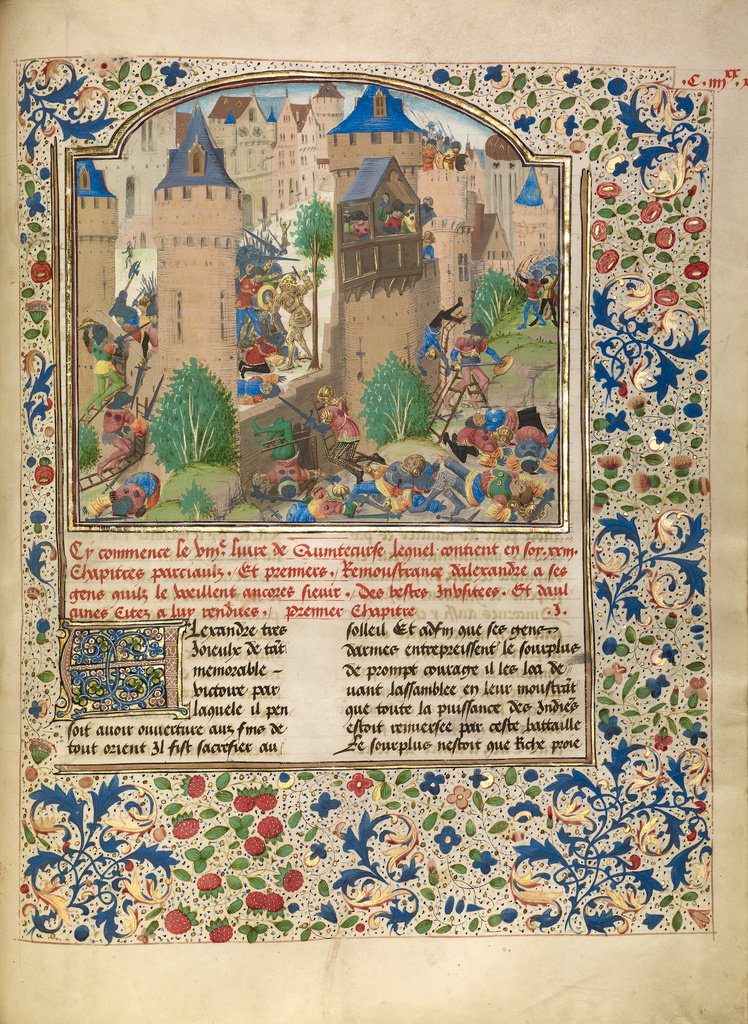 .C. iiij.xx. x
Cy commence le viiie. livre de Quintecurse lequel contient en soy .xxiii.
Chapitres parciaulz . Et premiers . Remoustrance dalexandre a ses
gens quilz le vueillent ancores sieuir . Des bestes Inusitees . Et daul
cunes Citez a luy rendues . premier Chapitre .I.
Alexandre tres
Joieulx de tãt
memorable –
victoire par
laquele il pen
soit avoir ouverture aux fins de
tout orient Il fist sacrefier au
solleil Et adfin que ses gens
darmes entrepreissent le sourplus
de prompt courage il les loa de
uant lassamblee en leur moustrãt
que toute la puissance des Indiẽs
estoit renversee par ceste battaille
Le sourplus nestoit que Riche proie